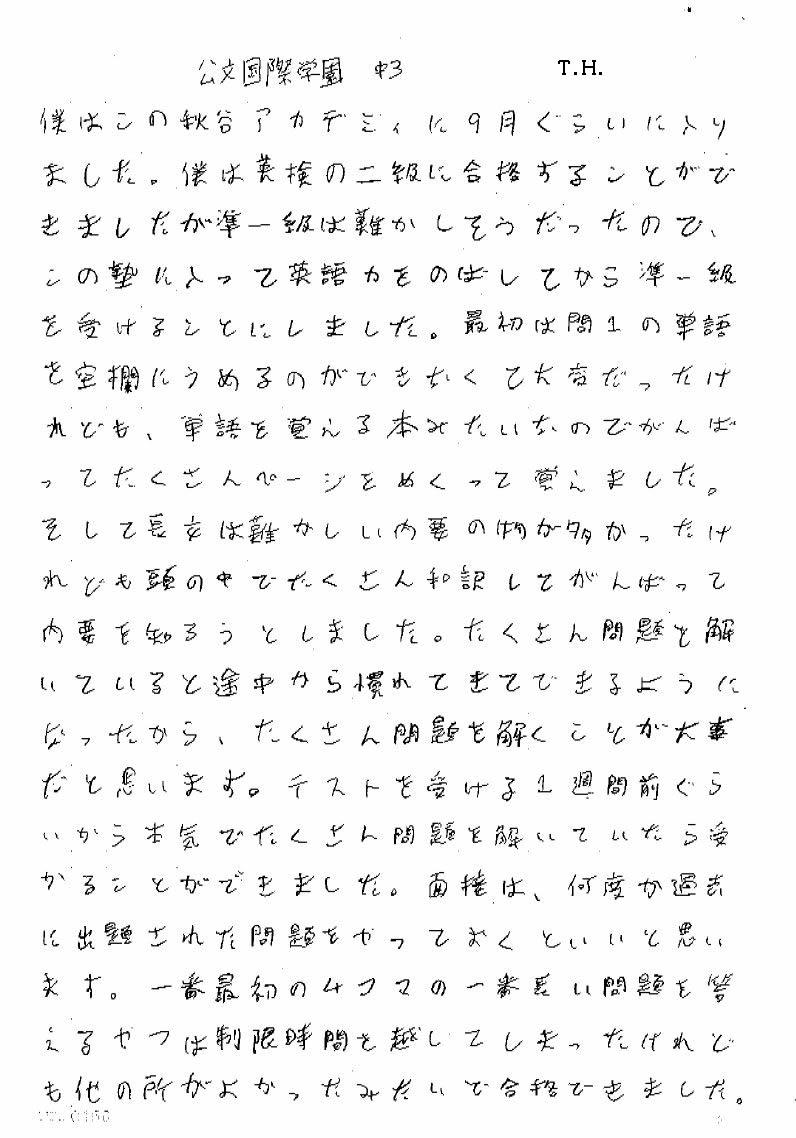 公文国際学園 中3 T.H.
僕はこの秋谷アカデミィに9月ぐらいに入り
ました。僕は英検の二級に合格することがで
きましたが準一級は難かしそうだったので、
この塾に入って英語力をのばしてから準一級
を受けることにしました。最初は問1の単語
を空欄にうめるのができなくて大変だったけ
れども、単語を覚える本みたいなのでがんば
ってたくさんページをめくって覚えました。
そして長文は難かしい内要の物が多かったけ
れども頭の中でたくさん和訳してがんばって
内要を知ろうとしました。たくさん問題を解
いていると途中から慣れてきてできるように
なったから、たくさん問題を解くことが大事
だと思います。テストを受ける1週間前ぐら
いから本気でたくさん問題を解いていたら受
かることができました。面接は、何度か過去
に出題された問題をやっておくといいと思い
ます。一番最初の4コマの一番長い問題を答
えるやつは制限時間を越してしまったけれど
も他の所がよかったみたいで合格できました。